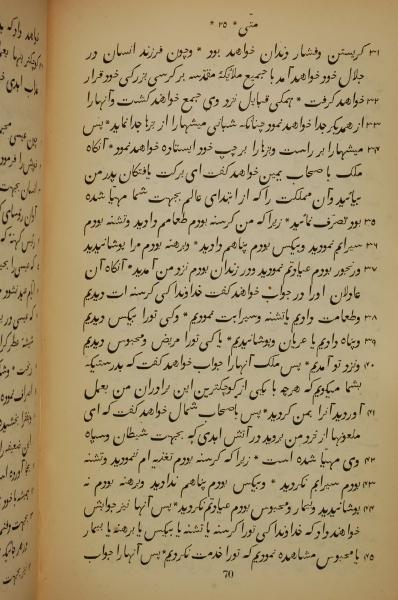 * متی * ۲۵ *
۳۱ کریستن وفشار دندان خواهد بود * وچون فرزند انسان در
جلال خود خواهد آمد با جمیع ملائکهٔ مقدسه بر کرسی بزرگی خود قرار
۳۲ خواهد گرفت * همگی قبایل نزد وی جمع خواهند گشت وآنها را
۳۳ از همدیگر جدا خواهد نمود چنانکه شبانی میشها را از بزها جدا نماید * پس
۳۴ میشها را بر راست وبزها را بر چپ خود ایستاده خواهد نمود * آنگاه
ملک با صحاب یمین خواهد گفت ای برکت یافتکان پدر من
بیائید وآن مملکت را که از ابتدای عالم بجهت شما مهیا شده
۳۵ بود تصرف نمائید * زیرا که من گرسنه بودم طعامم دادید وتشنه بودم
۳۶ سیرابم نمودید وبیکس بودم پناهم دادید * وبرهنه بودم مرا پوشانیدید
۳۷ ورنجور بودم عیادتم نمودید ودر زندان بودم نزد من آمدید * آنگاه آن
عادلان اورا در جواب خواهند گفت خداوندا کی گرسنه ات دیدیم
۳۸ وطعامت دادیم یا تشنه وسیرابت نمودیم * وکی تورا بیکس دیدیم
۳۹ وپناه دادیم یا عریان وپوشانیدیم * یا کی تورا مریض ومحبوس دیدیم
۴۰ ونزد تو آمدیم * پس ملک آنها را جواب خواهد گفت که بدرستیکه
بشما میگویم که هرچه با یکی از کوچکترین این برادران من بعمل
۴۱ آوردید آنرا بمن کردید * پس با صحاب شمال خواهد گفت که ای
ملعونها از نزد من بروید در آتش ابدی که بجهت شیطان وسپاه
۴۲ وی مهیا شده است * زیرا که گرسنه بودم تغذیه ام ننمودید وتشنه
۴۳ بودم سیرابم نکردید * وبیکس بودم پناهم ندادید وبرهنه بودم نه
۴۴ پوشانیدید وبیمار ومحبوس بودم عیادتم نکردید * پس آنها نیز جوابش
خواهند داد که خداوندا کی تورا گرسنه یا تشنه یا بیکس یا برهنه یا بیمار
۴۵ یا محبوس مشاهده نمودیم که تورا خدمت نکردیم * پس آنها را جواب
70